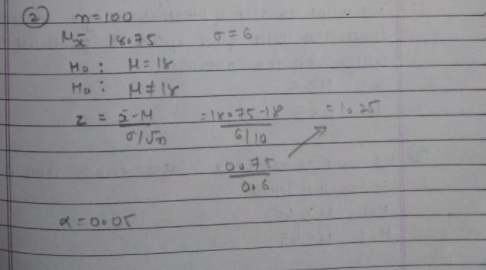 ② n=100
Mx̄ 18.75 σ=6
H₀ : M=18
Ha : M≠18
z = x̄-M / σ/√n = 18.75-18 / 6/10 = 1.25
0.75 / 0.6
α=0.05